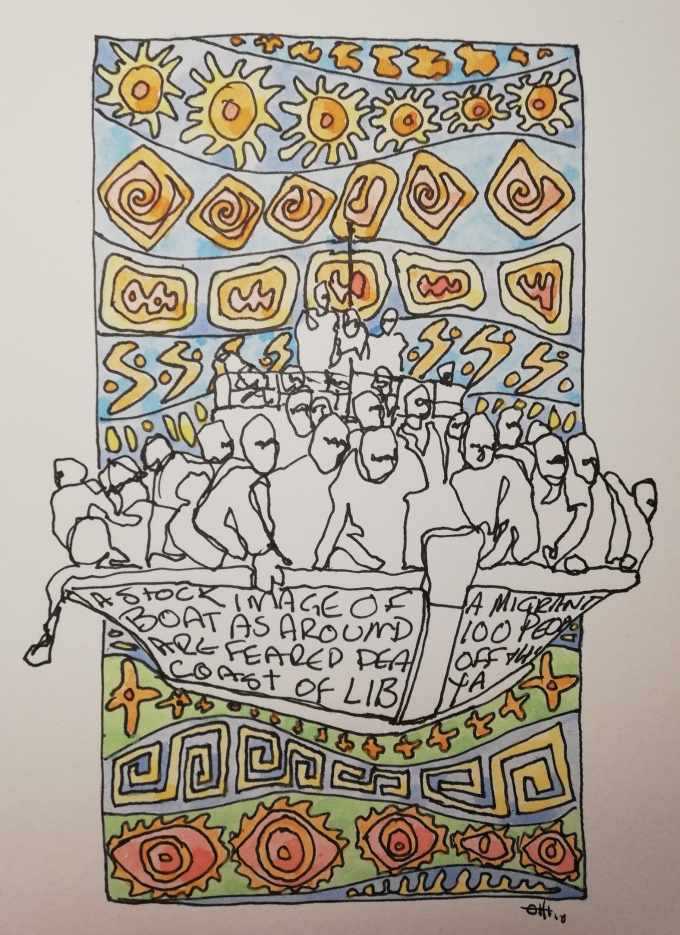 A STOCK IMAGE OF A MIGRANT
BOAT AS AROUND 100 PEOP
ARE FEARED DEA OFF THE
COAST OF LIB YA